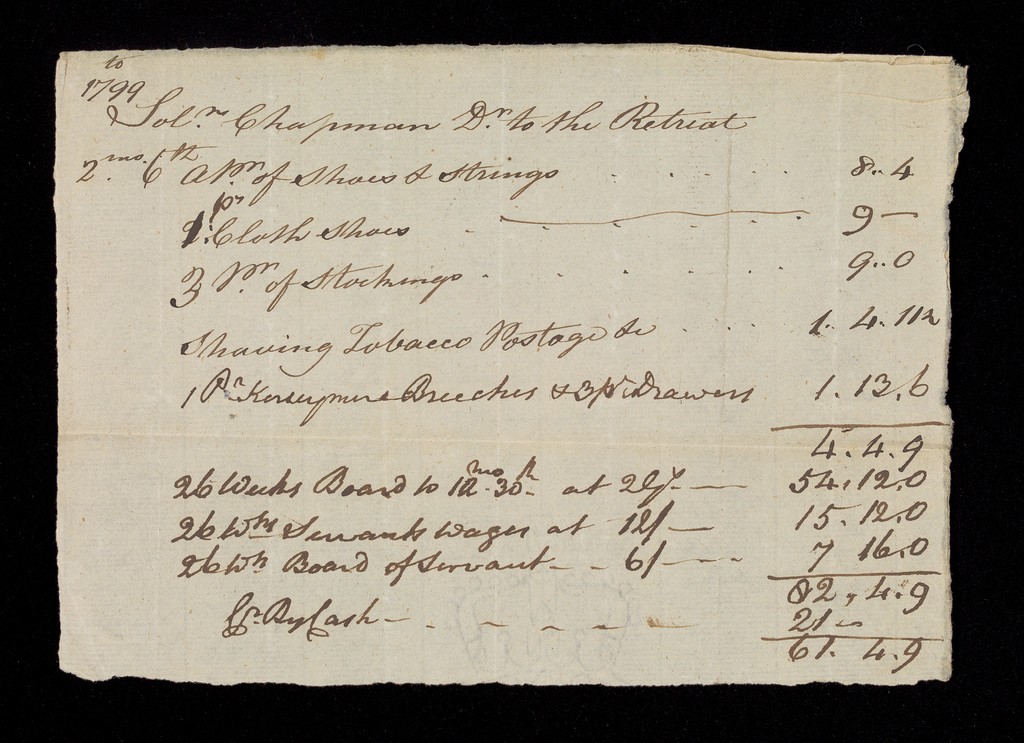 to
1799
Sol.n Chapman Dr. to the Retreat
2.mo. 6th A Pr. of Shoes & Strings . . . . . 8..4
1 pr Cloth Shoes . . . . . . 9 —
3 Pr. of Stockings . . . . . . 9..0
Shaving Tobacco Postage &c . . . 1. 4. 11½
1 Pr. Kerseymere Breeches & 3 pr. Drawers 1. 13. 6
4. 4. 9
26 Weeks Board to 12mo. 30th at 2 Gs — 54. 12. 0
26 Wks Servants Wages at 12/ — 15. 12. 0
26 Wks Board of Servant - - 6/ — 7 16. 0
82, 4. 9
Cr. By Cash - . - - - - 21 —
61. 4. 9